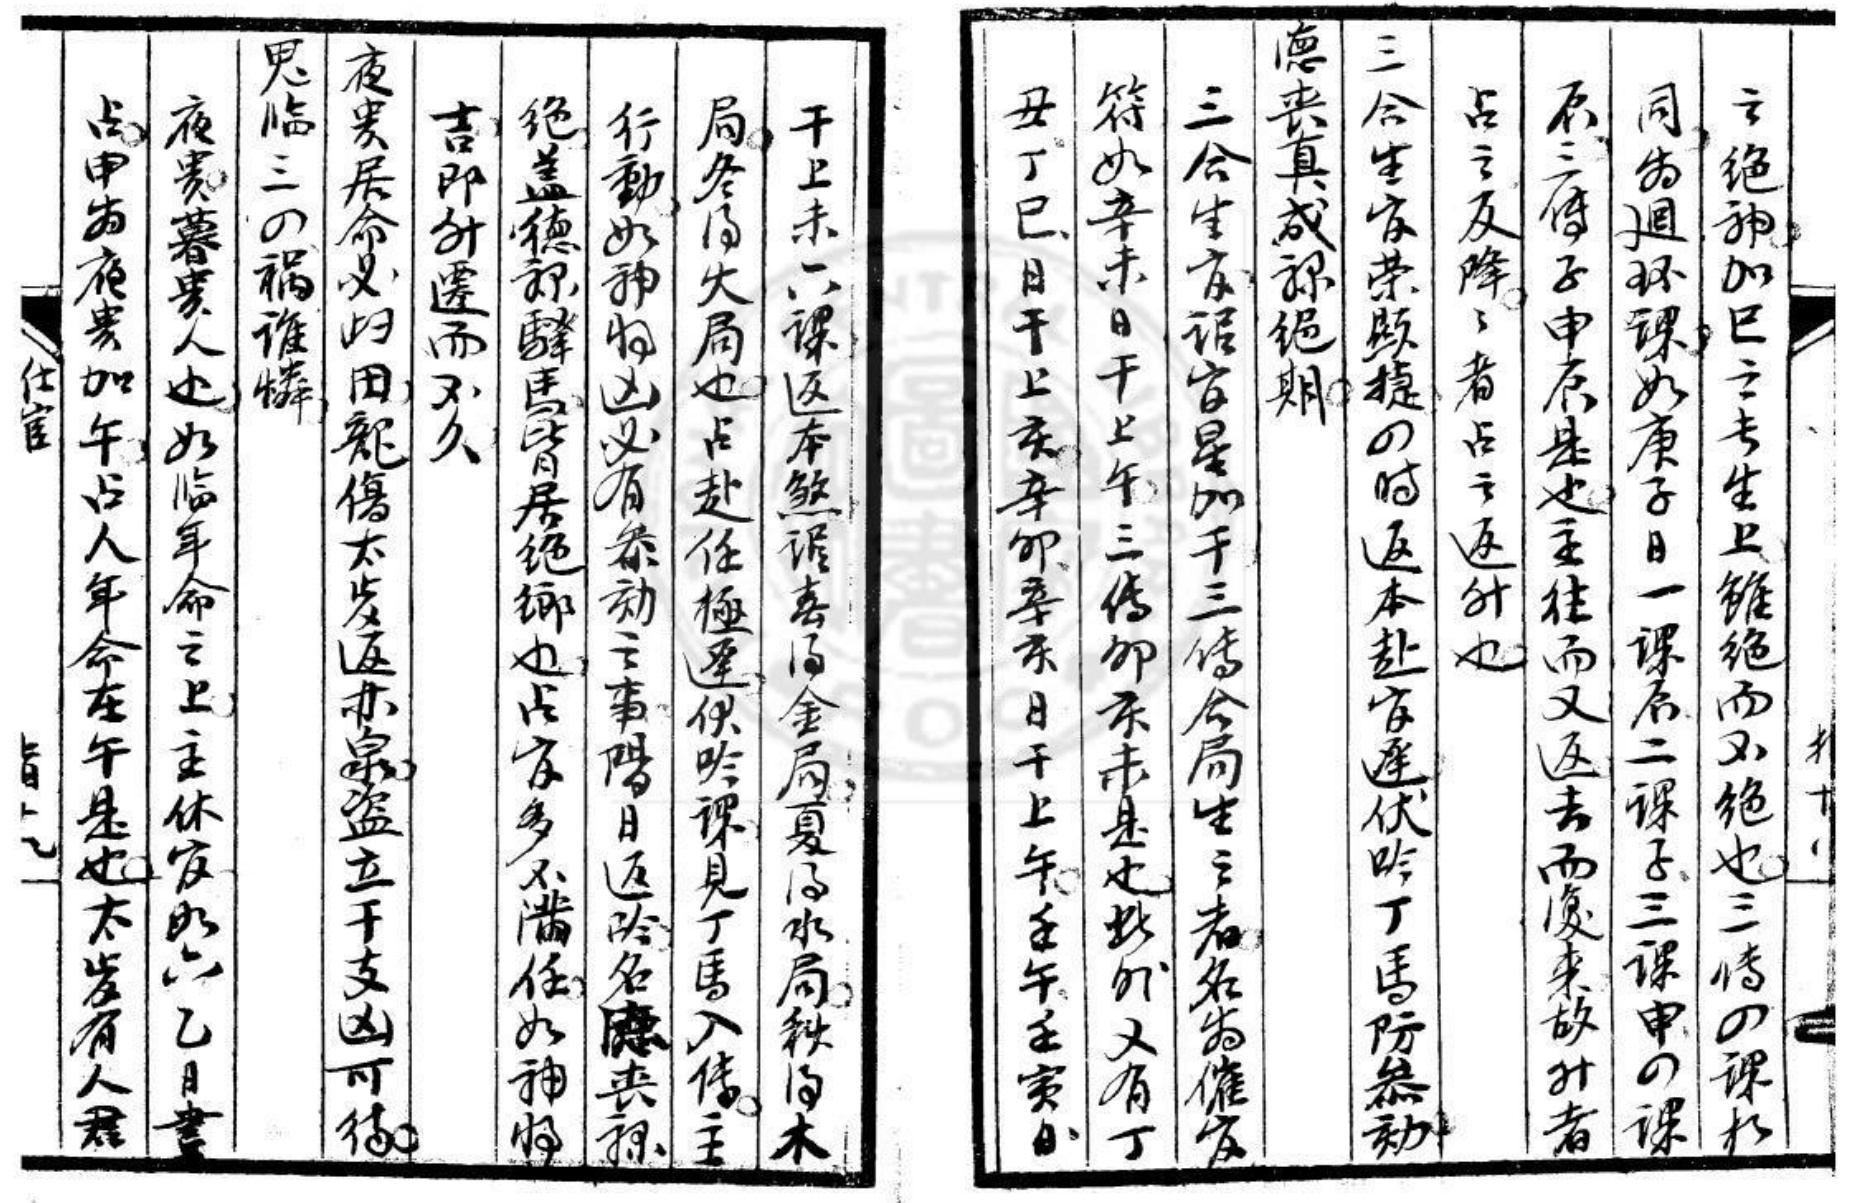 之绝神加巳之长生上雖绝而不绝也三傳の課相
同為迴环課如庚子日一課辰二課子三課申の課
辰三傳子申辰是也主往而又返去而復来故升者
占之反降〻者占之返升也
三合生官荣顯捷の時返本赴官遲伏吟丁馬防叅劾
德丧真成祿绝期
三合生官謂官星加干三傳合局生之者名為催官
符如辛未日干上午三傳卯亥未是也此外又有丁
丑丁巳日干上亥辛卯辛亥日干上午壬午壬寅日
干上未六課返本煞謂春得金局夏得水局秋得木
局冬得火局也占赴任極遲伏吟課見丁馬入傳主
行動如神將凶必有叅劾之事陽日返吟名德丧祿
绝盖德祿驛馬皆居绝鄉也占官多不滿任如神將
吉即升遷而不久
夜贵居命必归田龍傷太岁返赤泉盗立干支凶可待
鬼临三の禍谁憐
夜贵暮贵人也如临年命之上主休官如六乙日晝
占申為夜贵加午占人年命在午是也太岁有人君
仕宦